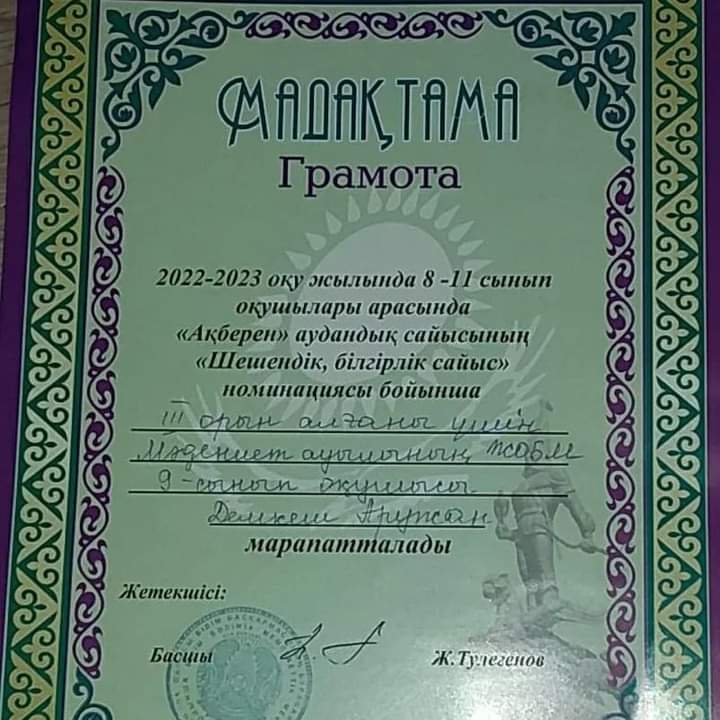 МАДАҚТАМА
Грамота
2022-2023 оқу жылында 8 -11 сынып
оқушылары арасында
«Ақберен» аудандық сайысының
«Шешендік, білгірлік сайыс»
номинациясы бойынша
III орын алғаны үшін
Мәдениет ауылының ЖОББМ
9-сынып оқушысы
Демкеш Аружан
марапатталады
Жетекшісі:
Басшы Ж.Тулегенов